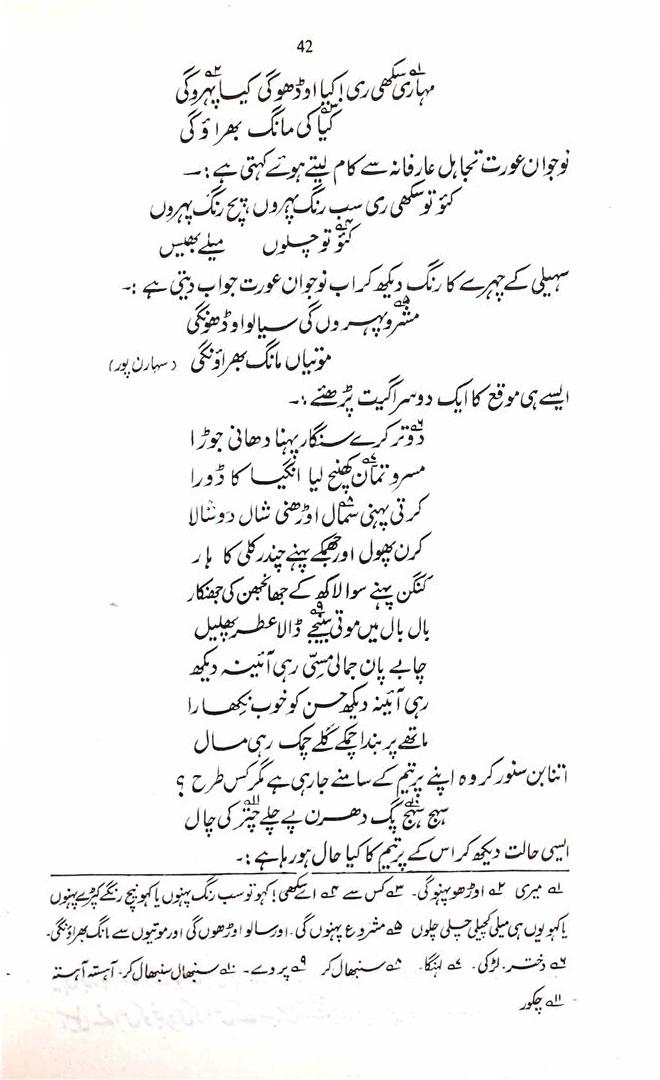 42
مہاری۱؎ سکھی ری! کیا اوڈھوگی کیا پہروگی۲؎
کیا۳؎ کی مانگ بھراؤ گی
نوجوان عورت تجاہل عارفانہ سے کام لیتے ہوئے کہتی ہے :۔
کئو تو سکھی ری سب رنگ پہروں، پیچ رنگ پہروں
کئو۴؎ تو چلوں میلے بھیس
سہیلی کے چہرے کا رنگ دیکھ کر اب نوجوان عورت جواب دیتی ہے :۔
مشرو۵؎ پہروں گی سیالو اوڈھونگی
موتیاں مانگ بھراؤنگی (سہارن پور)
ایسے ہی موقع کا ایک دوسرا گیت پڑھئے :۔
دوتر۶؎ کرے سنگار پہنا دھانی جوڑا
مسرو تمان۷؎ کھنچ لیا انگیا کا ڈورا
کرتی پہنی سمال۸؎ اوڑھنی شال دوشالا
کرن پھول اور جھمکے پہنے چندر کلی کا ہار
کنگن پہنے سوا لاکھ کے جھانجھن کی جھنکار
بال بال میں موتی سنجے۹؎ ڈالا عطر پھلیل
چابے پان جمالی مسّی رہی آئینہ دیکھ
رہی آئینہ دیکھ حسن کو خوب نکھارا
ماتھے پر بندا چمکے گلے چمک رہی مال
اتنا بن سنور کر وہ اپنے پرتیم کے سامنے جا رہی ہے مگر کس طرح ؟
سہج سہج۱۰؎ پگ دھرن پے چلے چتر۱۱؎ کی چال
ایسی حالت دیکھ کر اس کے پرتیم کا کیا حال ہو رہا ہے :۔
۱؎ میری ۲؎ اوڑھو پہنوگی۔ ۳؎ کس سے ۴؎ اے سکھی! کہو تو سب رنگ پہنوں یا کہو نیچ رنگے کپڑے پہنوں
یا کہو یوں ہی میلی کچیلی چلی چلوں ۵؎ مشروع پہنوں گی۔ اور سالو اوڑھوں گی اور موتیوں سے مانگ بھراؤنگی۔
۶؎ دختر۔ لڑکی۔ ۷؎ لہنگا۔ ۸؎ سنبھال کر ۹؎ پروے۔ ۱۰؎ سنبھال سنبھال کر۔ آہستہ آہستہ
۱۱؎ چکور